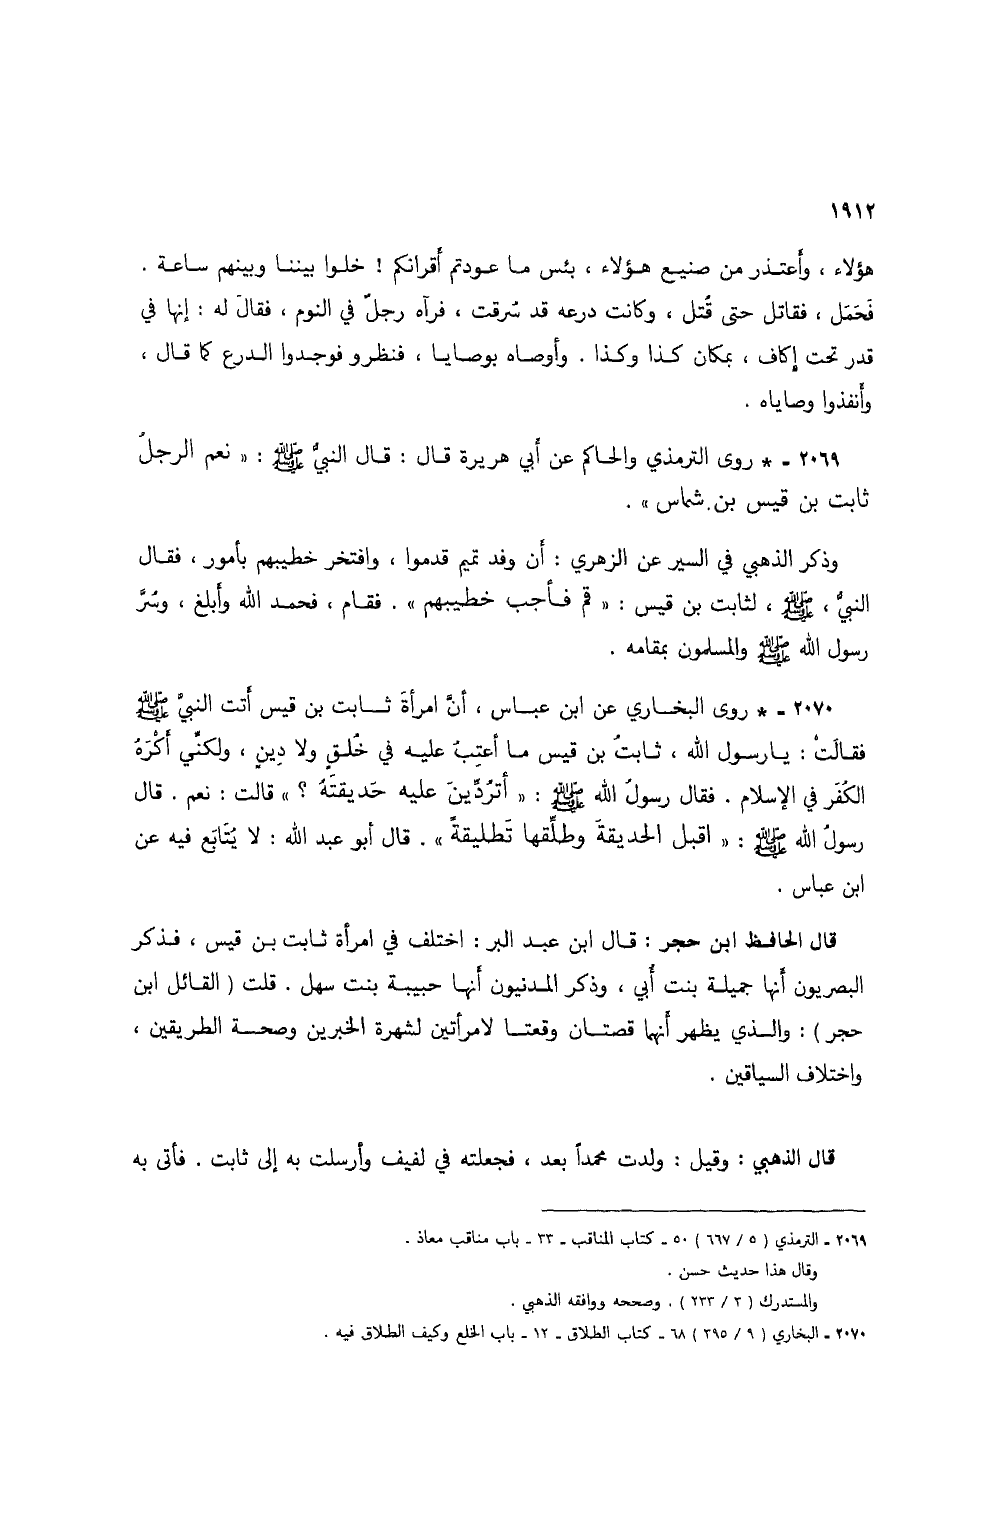 ١٩١٢
هؤلاء ، وأَعتـذر من صنيـع هـؤلاء ، بئس مـا عـودتم أَقرانكم ! خلـوا بيننـا وبينهم سـاعـة .
فَحَمَل ، فقاتل حتى قُتل ، وكانت درعه قد سُرقت ، فرآه رجلٌ في النوم ، فقالَ له : إنها في
قدر تحت إِكاف ، بمكان كـذا وكـذا . وأوصـاه بوصـايـا ، فنظـرو فوجـدوا الـدرع كما قـال ،
وأَنفذوا وصاياه .
٢٠٦٩ ـ * روى الترمذي والحـاكم عن أَبي هريرة قـال : قـال النبيُّ ﷺ : « نعم الرجلُ
ثابت بن قيس بن شماس » .
وذكر الذهبي في السير عن الزهري : أَن وفد تميم قدموا ، وافتخر خطيبهم بأمور ، فقـال
النبيُّ ، ﷺ ، لثابت بن قيس : « قم فـأجب خطيبهم » . فقـام ، فحمـد الله وأَبلغ ، وسُرَّ
رسول الله ﷺ والمسلمون بمقامه .
٢٠٧٠ ـ * روى البخـاري عن ابن عبـاس ، أَنَّ امرأَةَ ثـابت بن قيس أَتت النبيَّ ﷺ
فقـالَتْ : يـارسـول الله ، ثـابتُ بن قيس مـا أعتِبُ عليـه في خُلـقٍ ولا دِينٍ ، ولكنِّي أَكْرَهُ
الكُفَر في الإسلام . فقال رسولُ الله ﷺ : « أَترُدِّينَ عليه حَديقتَهُ ؟ » قالت : نعم . قال
رسولُ الله ﷺ : « اقبل الحديقةَ وطلِّقها تَطليقةً » . قال أبو عبد الله : لا يُتَابَع فيه عن
ابن عباس .
قال الحافـظ ابن حجر : قـال ابن عبـد البر : اختلف في امرأة ثـابت بـن قيس ، فـذكر
البصريون أَنها جميلـة بنت أُبي ، وذكر المـدنيون أَنهـا حبيبـة بنت سهل . قلت ( القـائل ابن
حجر ) : والـذي يظهر أَنهما قصتـان وقعتـا لامرأتين لشهرة الخبرين وصحـة الطريقين ،
واختلاف السياقين .
قال الذهبي : وقيل : ولدت محمداً بعد ، فجعلته في لفيف وأرسلت به إلى ثابت . فأتى به
٢٠٦٩ ـ الترمذي ( ٥ / ٦٦٧ ) ٥٠ ـ كتاب المناقب ـ ٣٣ ـ باب مناقب معاذ .
وقال هذا حديث حسن .
والمستدرك ( ٣ / ٢٣٣ ) . وصححه ووافقه الذهبي .
٢٠٧٠ ـ البخاري ( ٩ / ٣٩٥ ) ٦٨ ـ كتاب الطلاق ـ ١٢ ـ باب الخلع وكيف الطلاق فيه .